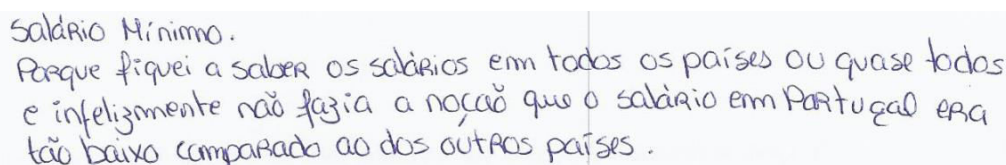 Salário Mínimo.
Porque fiquei a saber os salários em todos os países ou quase todos
e infelizmente não fazia a noção que o salário em Portugal era
tão baixo comparado ao dos outros países.